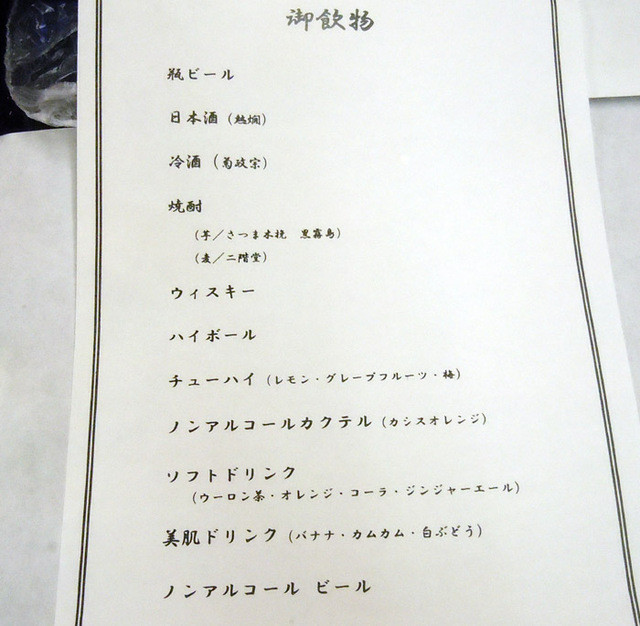 御飲物
瓶ビール
日本酒（熱燗）
冷酒（菊政宗）
焼酎
（芋／さつま木挽　黒霧島）
（麦／二階堂）
ウィスキー
ハイボール
チューハイ（レモン・グレープフルーツ・梅）
ノンアルコールカクテル（カシスオレンジ）
ソフトドリンク
（ウーロン茶・オレンジ・コーラ・ジンジャーエール）
美肌ドリンク（バナナ・カムカム・白ぶどう）
ノンアルコール ビール